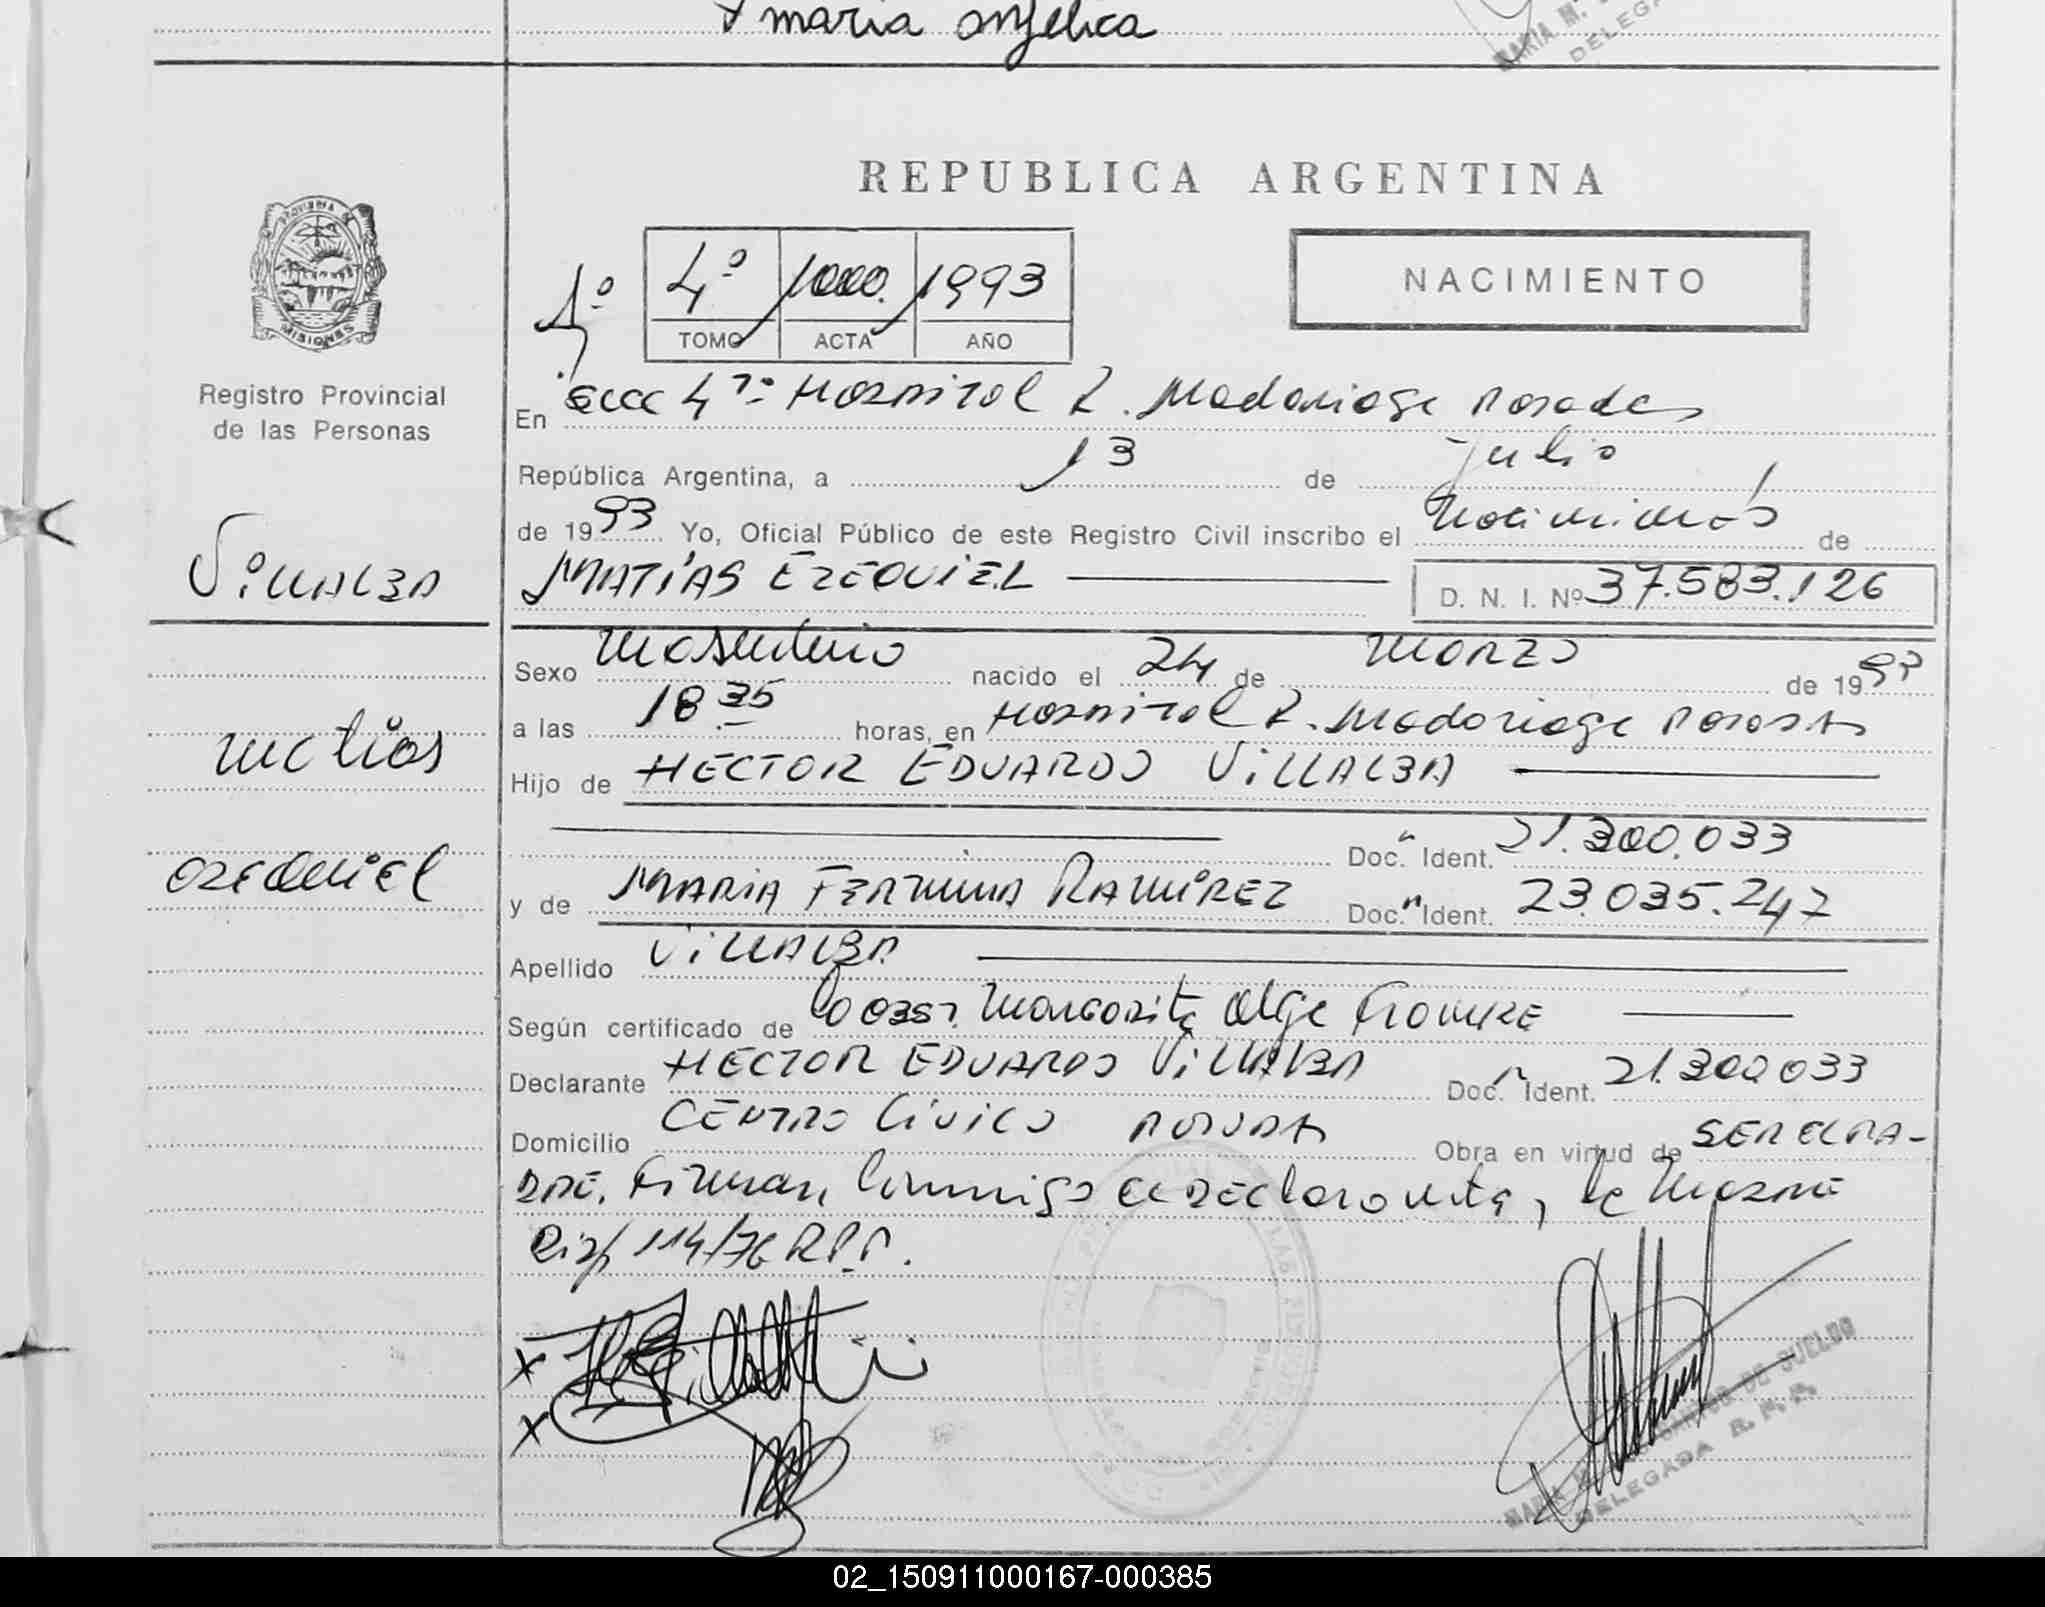 y maria angelica
MARIA M.
DELEGA
REPUBLICA ARGENTINA
PROVINCIA DE
MISIONES
4º 1000. 1993
TOMO ACTA AÑO
NACIMIENTO
Registro Provincial
de las Personas
En Secc 4ta Hospital R. Madariaga Posadas
República Argentina, a 13 de Julio
de 1993 Yo, Oficial Público de este Registro Civil inscribo el Nacimiento de
MATÍAS EZEQUIEL D. N. I. Nº 37.583.126
VILLALBA
Sexo Masculino nacido el 24 de MARZO de 1993
a las 18 35 horas, en Hospital R. Madariaga Posadas
Matias
Hijo de HECTOR EDUARDO VILLALBA
Doc. Ident. 21.300.033
EZEQUIEL
y de MARIA FERMINA RAMIREZ Doc. Ident. 23.035.247
Apellido VILLALBA
Según certificado de Margarita Olga
Declarante HECTOR EDUARDO VILLALBA Doc. Ident. 21.300.033
Domicilio CENTRO CIVICO POSADAS Obra en virtud de SER EL PA-
DRE. Firman Conmigo el Declarante, la Madre
Disp 114/76 R.P.P.
X
X
DE SUELDO
DELEGADA R. P. P.
02_150911000167-000385